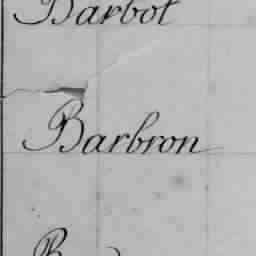 Barbot
Barbron